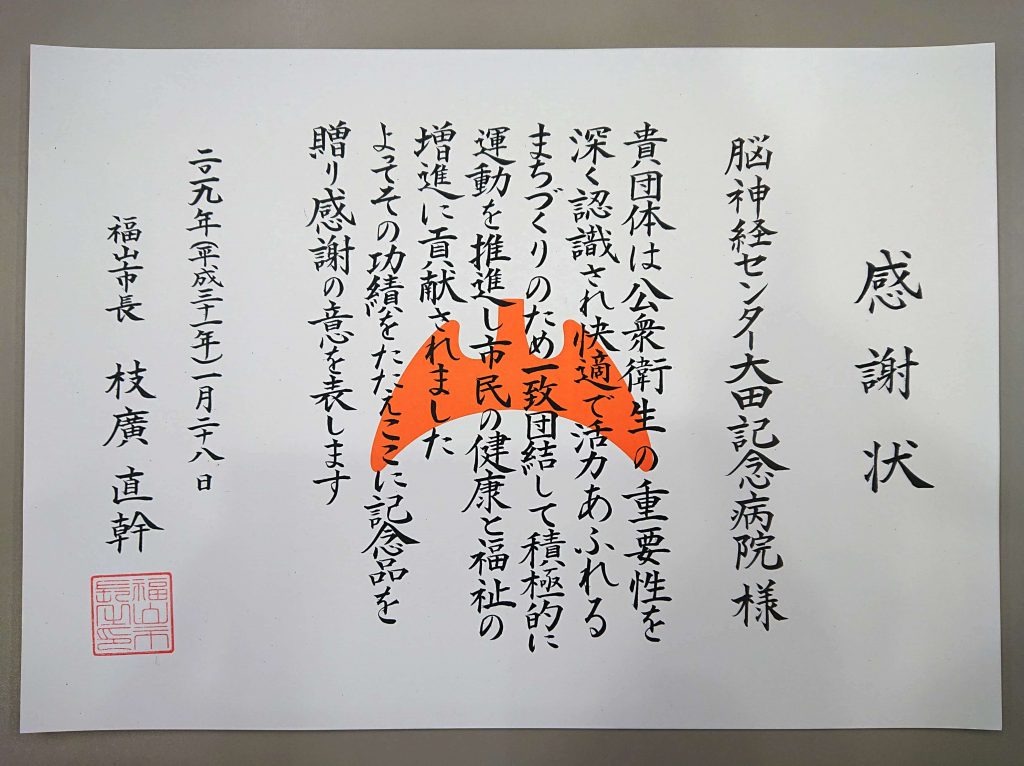 感謝状
脳神経センター大田記念病院様
貴団体は公衆衛生の重要性を
深く認識され快適で活力あふれる
まちづくりのため一致団結して積極的に
運動を推進し市民の健康と福祉の
増進に貢献されました
よってその功績をたたえここに記念品を
贈り感謝の意を表します
二〇一九年(平成三十一年)一月二十八日
福山市長 枝廣直幹
福山市
長之印